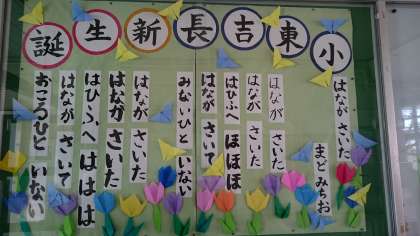 誕生新長吉東小
はながさいた
まどみちお
はなが さいた
はなが さいた
はひふへ ほほほ
はなが さいて
みないひと いない
はなが さいた
はなが さいた
はひふへ ははは
はなが さいて
おこるひと いない